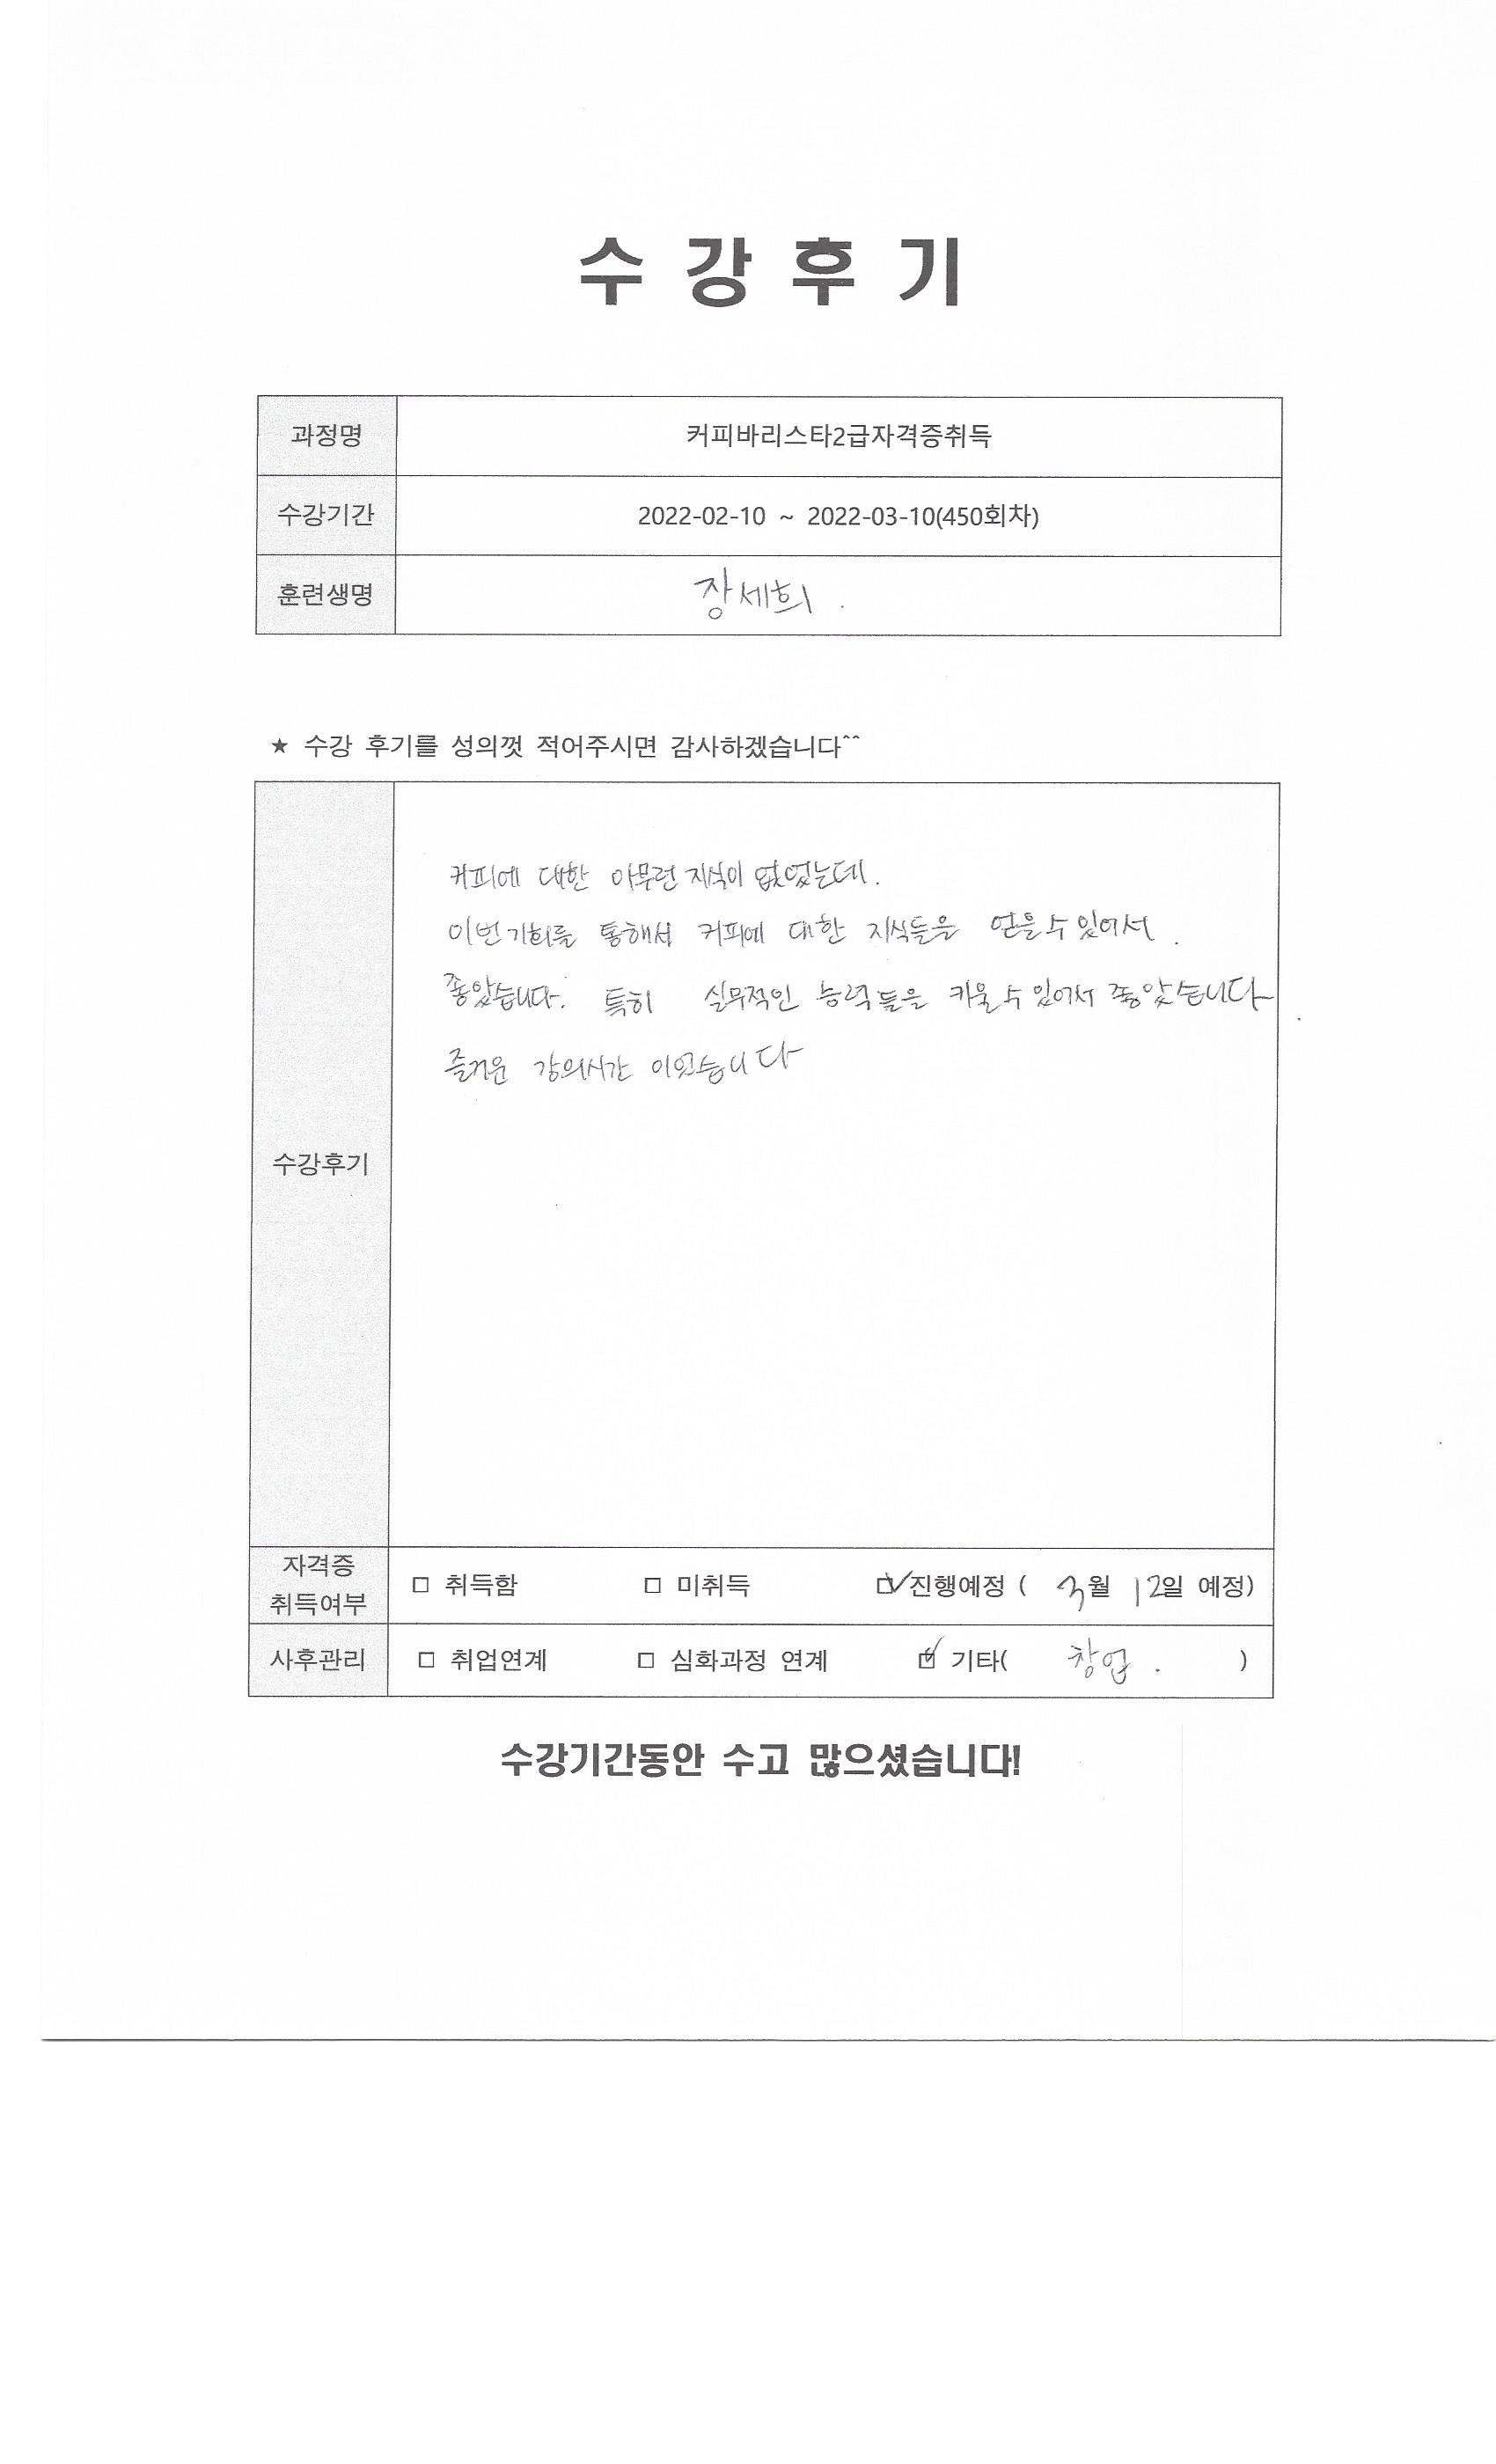 수 강 후 기
과정명 커피바리스타2급자격증취득
수강기간 2022-02-10 ~ 2022-03-10(450회차)
훈련생명 장세희.
★ 수강 후기를 성의껏 적어주시면 감사하겠습니다^^
커피에 대한 아무런 지식이 없었는데.
이번기회를 통해서 커피에 대한 지식들을 얻을수있어서.
좋았습니다. 특히 실무적인 능력들을 키울수있어서 좋았습니다
즐거운 강의시간 이었습니다
수강후기
자격증
취득여부
□ 취득함 □ 미취득 ☑ 진행예정 ( 3월 12일 예정)
사후관리 □ 취업연계 □ 심화과정 연계 ☑ 기타( 창업. )
수강기간동안 수고 많으셨습니다!